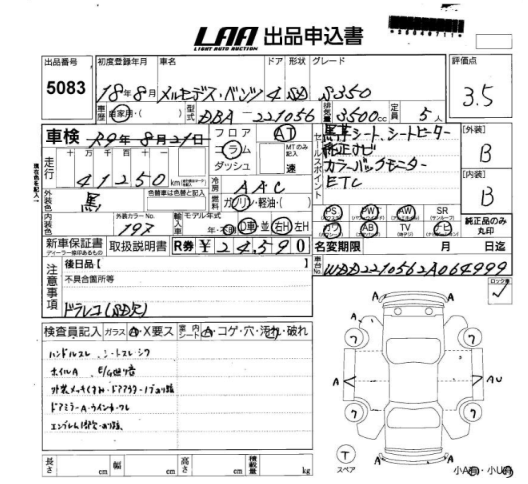 LAA 出品申込書
LIGHT AUTO AUCTION
出品番号 初度登録年月 車名 ドア 形状 グレード 評価点
5083 18年8月 メルセデス・ベンツ 4 SD S350 3.5
車歴 自家用・( ) 型式 DBA-221056 排気量 3500cc 定員 5人
車検 R9年8月21日 フロア AT
コラム MTのみ記入
ダッシュ 速
セールスポイント 黒革シート、シートヒーター
純正ナビ
カラーバックモニター
ETC
【外装】 B
【内装】 B
走行 十万千百十
41250 km
冷房 AAC
外装色 黒 色替車は色替と記入
燃料 ガソリン・軽油・( )
内装色 外装カラーNo. 197
輸入車 モデル年式 D車 並 右H 左H
PS PW AW SR
AB TV ナビ
純正品のみ丸印
新車保証書 取扱説明書 R券 ¥24,590 名変期限 月 日迄
ディーラー様印あるもの
車台No. WDD2210562A064999
注意事項 後日品【 】
不具合箇所等
ドラレコ(SD欠)
ロック車
検査員記入 ガラス A・X要ス 室内シート A・コゲ・穴・汚れ・破れ
ハンドルスレ、シートスレ・シワ
ホイルA
ドアミラーA・ウインカーワレ
長さ cm 幅 cm 高さ cm 積載量 kg
A A
7 7
A AU
7 7
A A
T
スペア
小A 小U